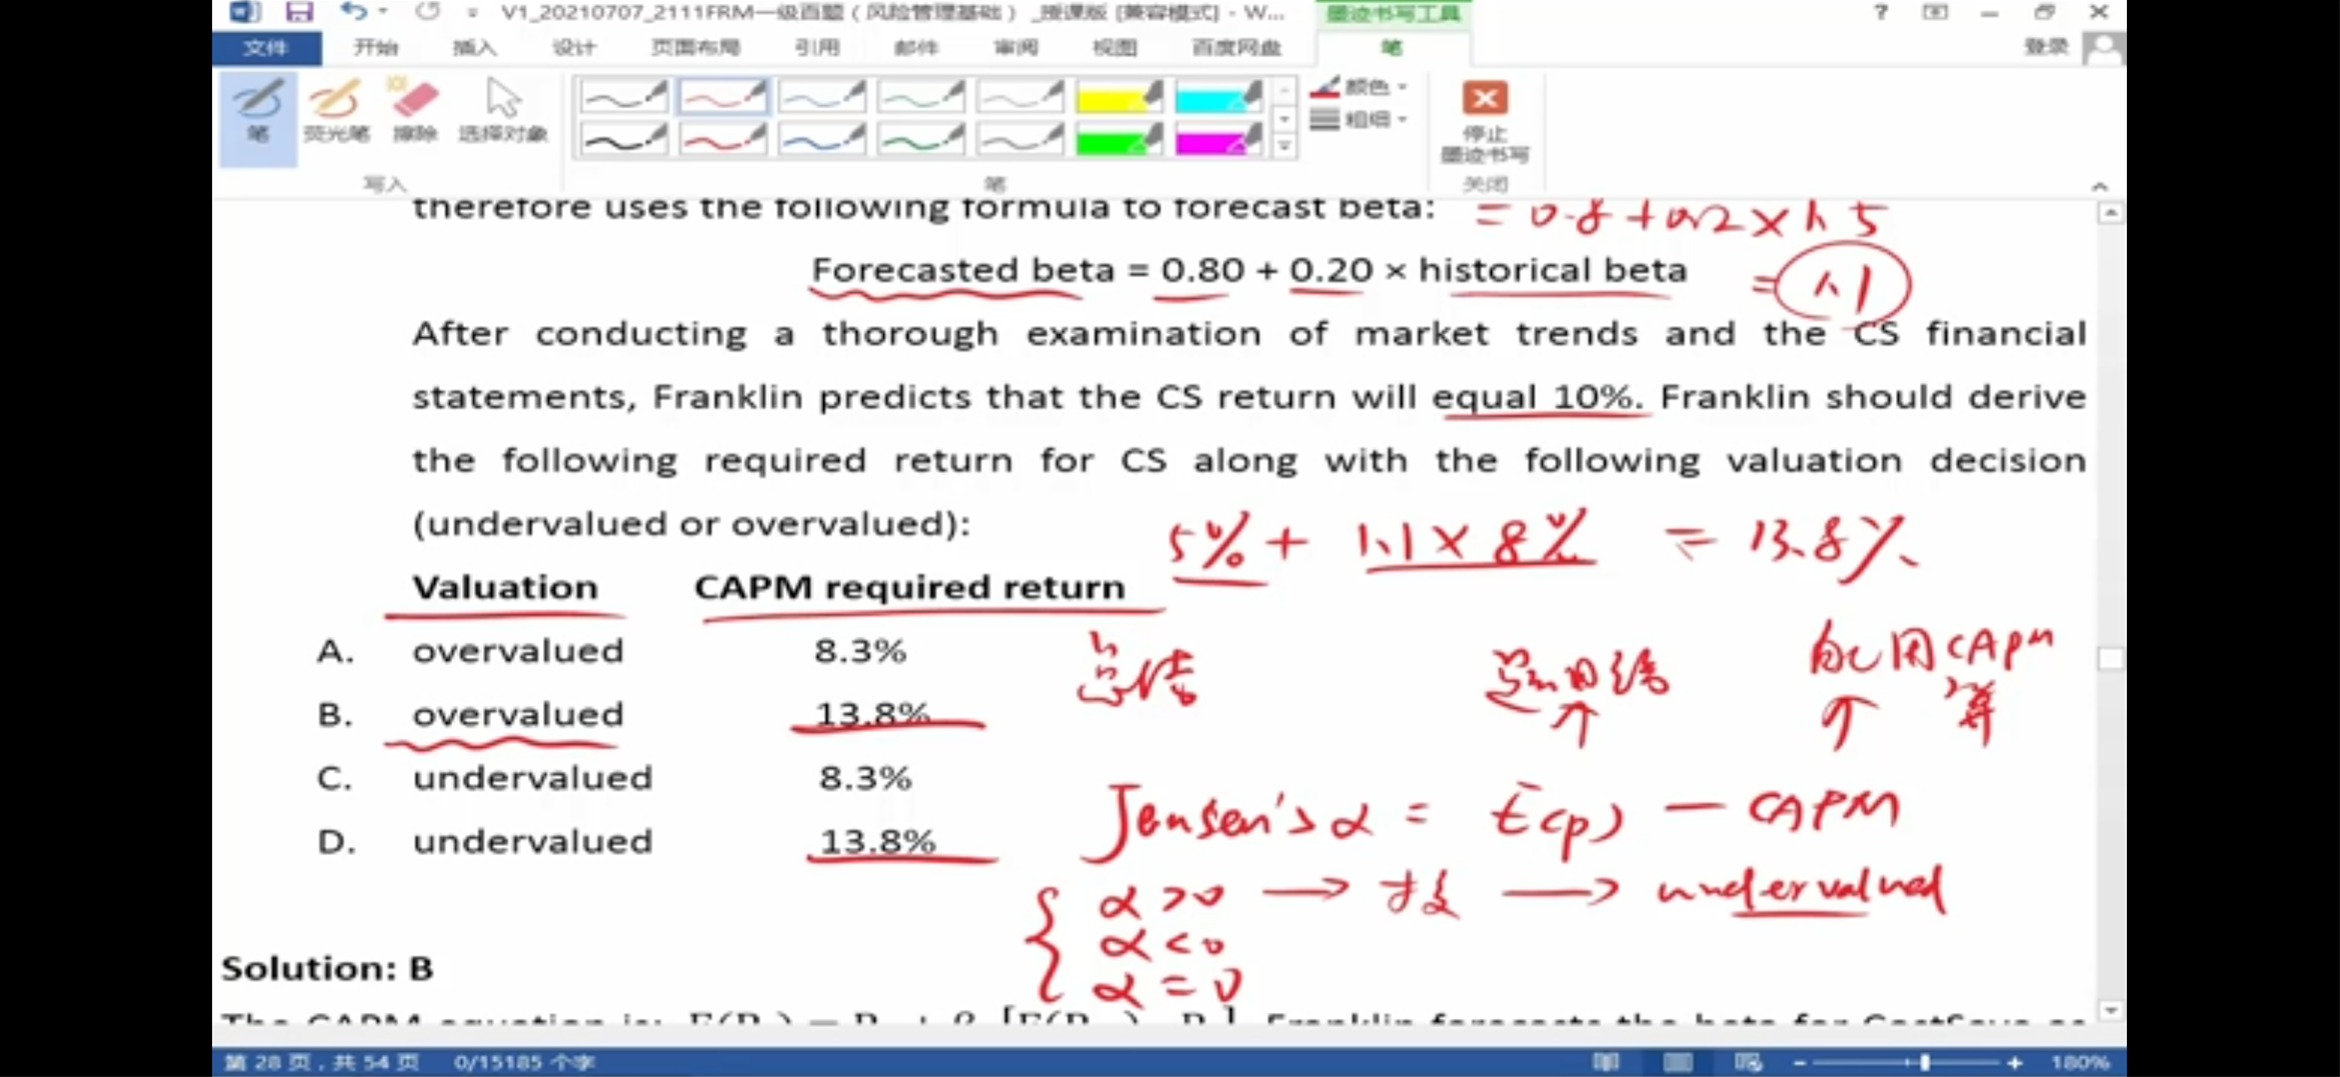 V1_20210707_2111FRM一级百题（风险管理基础）_授课版 [兼容模式] - W...
墨迹书写工具
?
文件 开始 插入 设计 页面布局 引用 邮件 审阅 视图 百度网盘 笔 登录
笔 荧光笔 擦除 选择对象
颜色
粗细
停止
墨迹书写
写入 笔 关闭
therefore uses the following formula to forecast beta: = 0.8 + 0.2 × 1.5
Forecasted beta = 0.80 + 0.20 × historical beta = 1.1
After conducting a thorough examination of market trends and the CS financial
statements, Franklin predicts that the CS return will equal 10%. Franklin should derive
the following required return for CS along with the following valuation decision
(undervalued or overvalued):
5% + 1.1 × 8% = 13.8%
Valuation CAPM required return
A. overvalued 8.3%
总结
用CAPM
算
B. overvalued 13.8%
C. undervalued 8.3%
Jensen's α = E(p) — CAPM
D. undervalued 13.8%
α > 0 → → undervalued
α < 0
α = 0
Solution: B
The CAPM equation is: Franklin forecasts the beta for CostSave as
第 28 页，共 54 页 0/15185 个字 180%